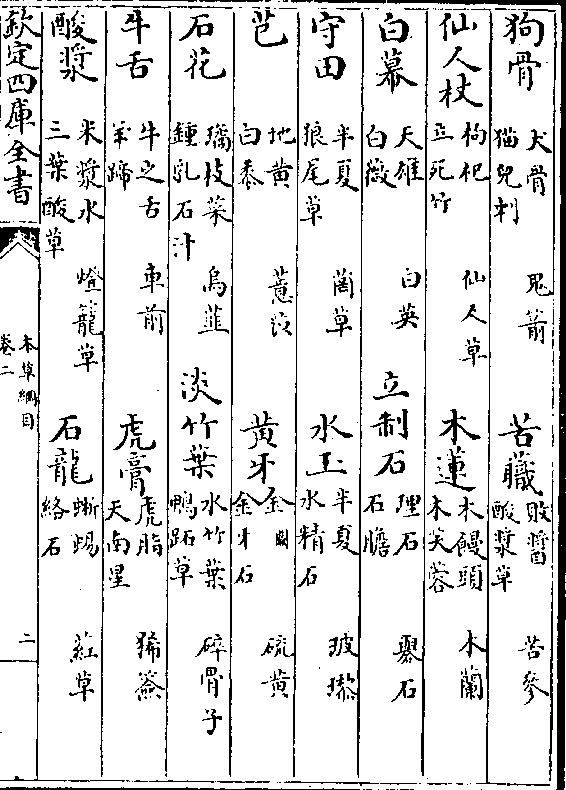 狗骨 犬骨 猫兒刺 鬼箭 苦蘵 敗醬 酸漿草 苦參
仙人杖 枸杞 立死竹 仙人草 木蓮 木饅頭 木芙蓉 木蘭
白幕 天雄 白薇 白英 立制石 理石 石膽 礜石
守田 半夏 狼尾草 䔭草 水玉 半夏 水精石 玻瓈
芑 地黃 白黍 薏苡 黃牙 金 金牙石 硫黃
石花 璚枝菜 鍾乳石汁 烏韭 淡竹葉 水竹葉 鴨跖草 碎骨子
牛舌 牛之舌 羊蹄 車前 虎膏 虎脂 天南星 豨薟
酸漿 米漿水 三葉酸草 燈籠草 石龍 蜥蜴 絡石 葒草
欽定四庫全書 本草綱目 卷二 二